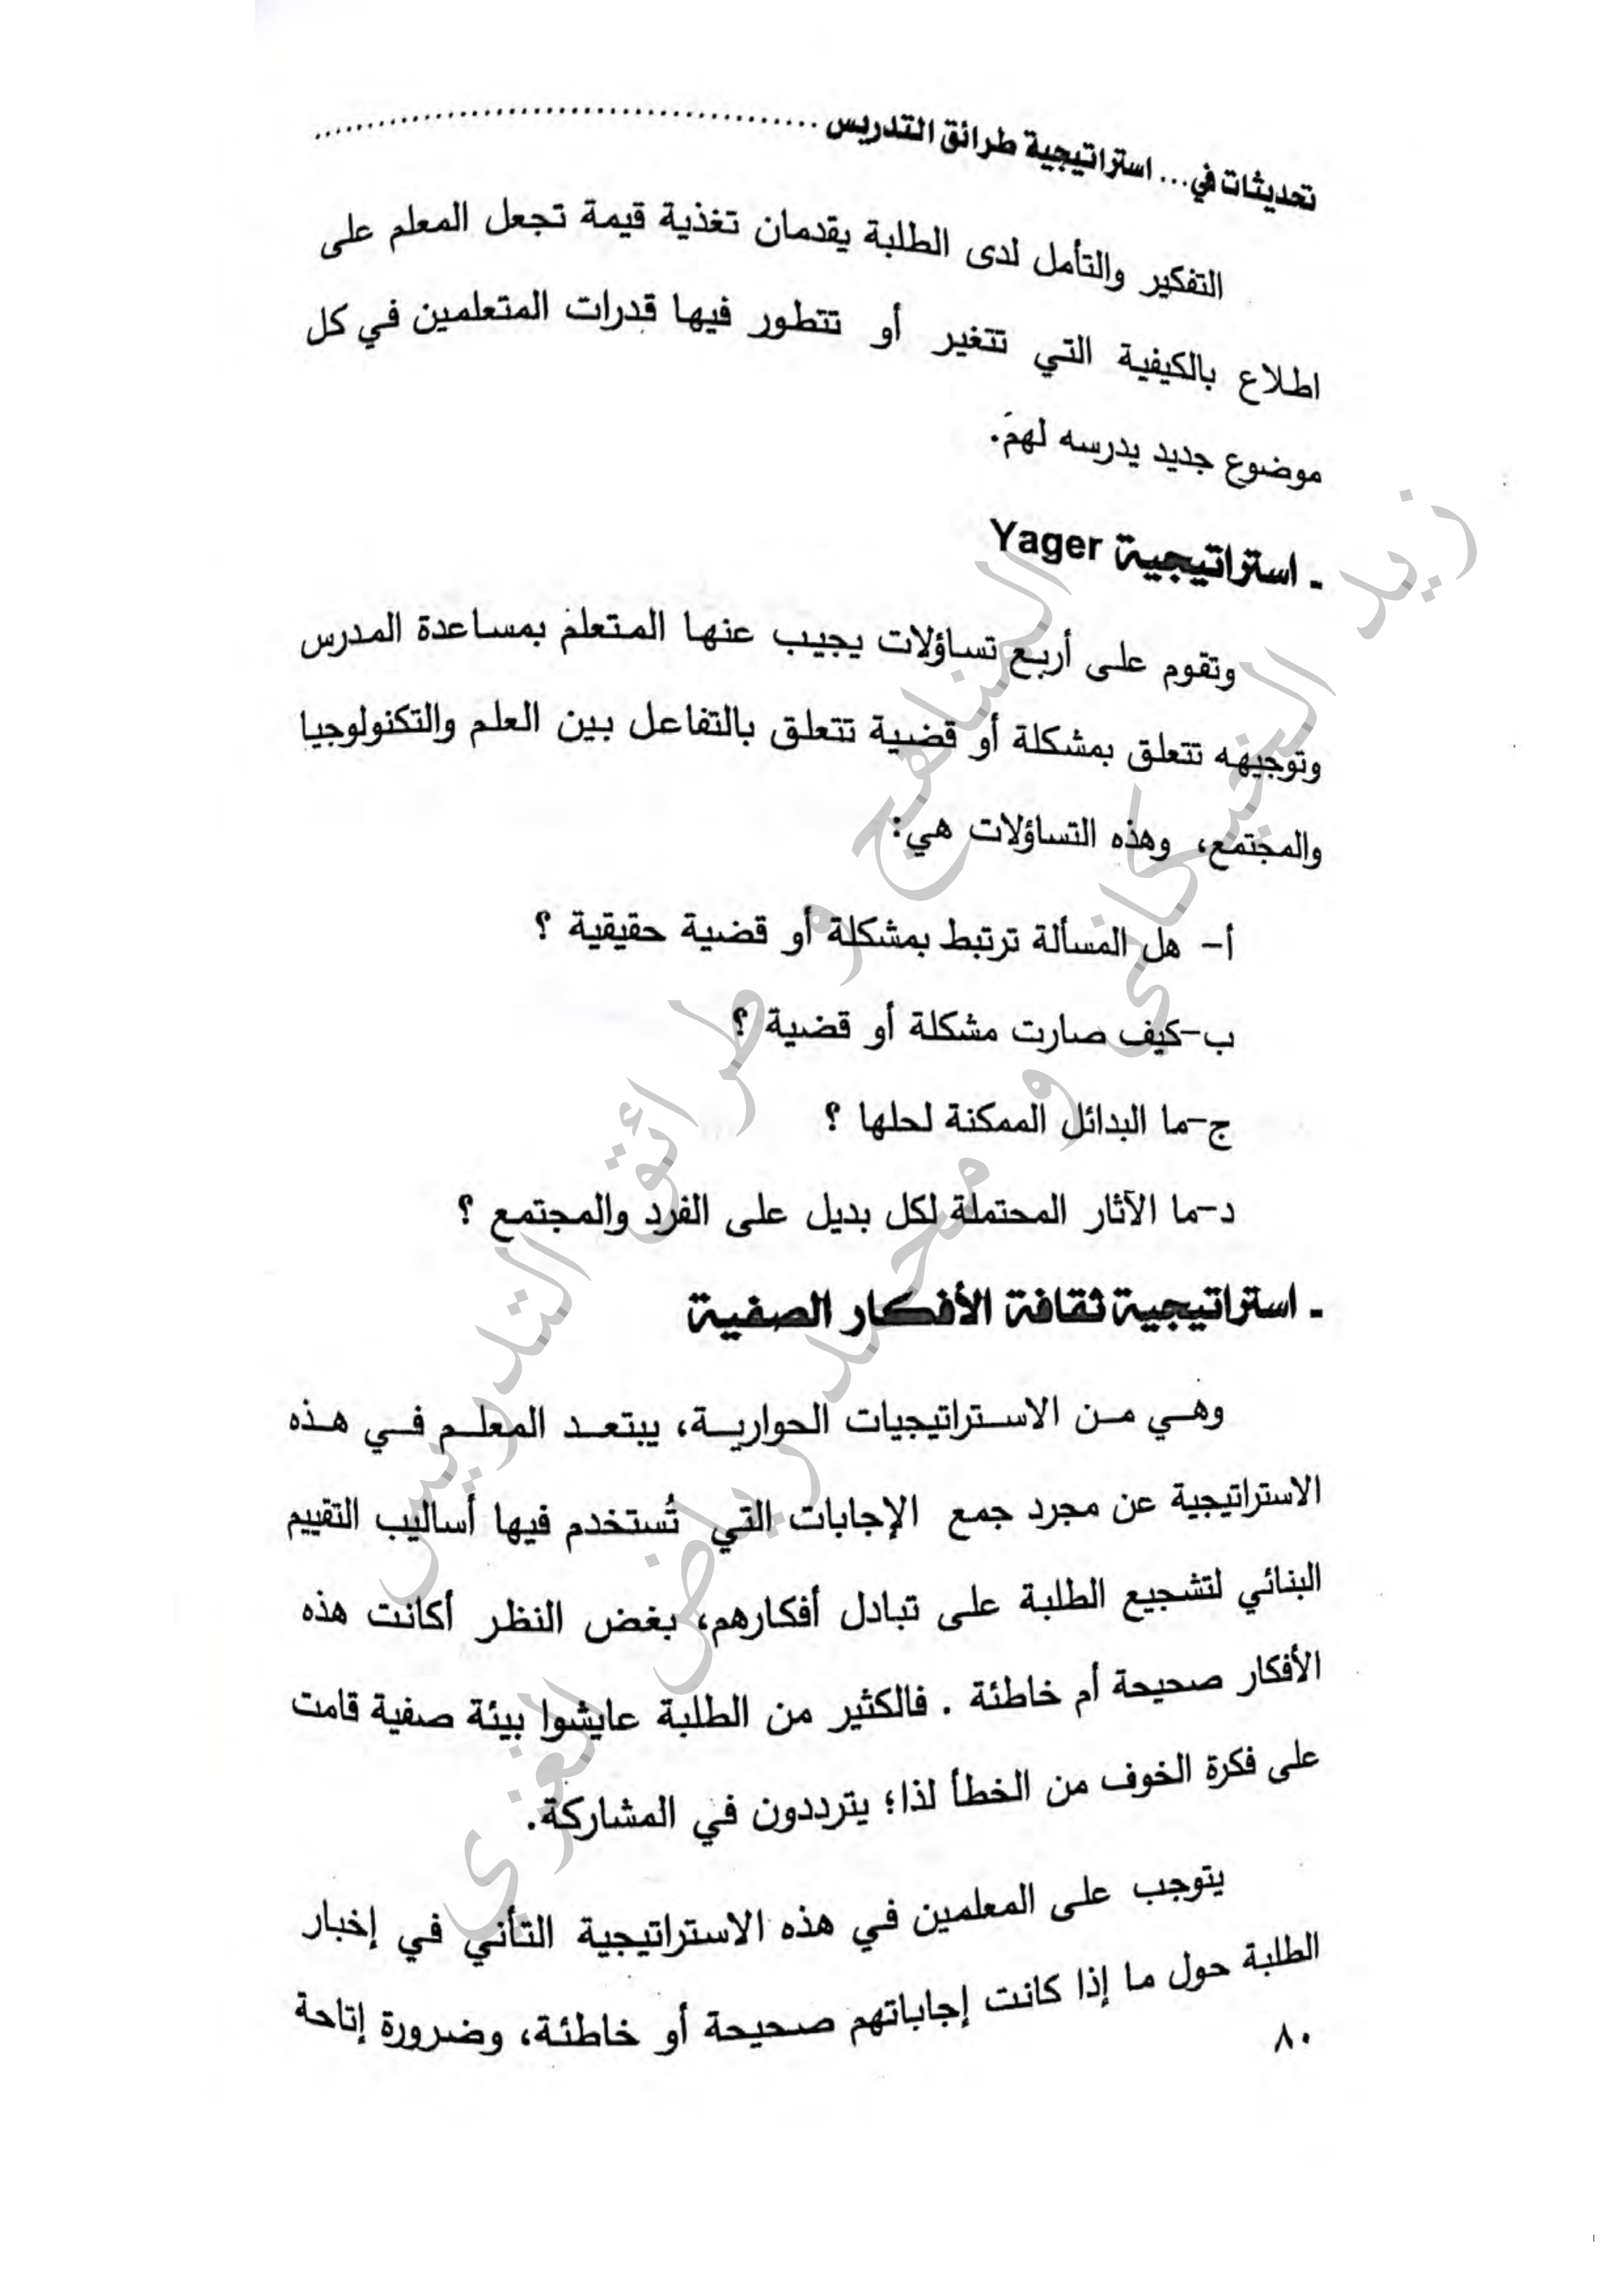 تحديثات في... استراتيجية طرائق التدريس
التفكير والتأمل لدى الطلبة يقدمان تغذية قيمة تجعل المعلم على
اطلاع بالكيفية التي تتغير أو تتطور فيها قدرات المتعلمين في كل
موضوع جديد يدرسه لهم.
- استراتيجية Yager
وتقوم على أربع تساؤلات يجيب عنها المتعلم بمساعدة المدرس
وتوجيهه تتعلق بمشكلة أو قضية تتعلق بالتفاعل بين العلم والتكنولوجيا
والمجتمع، وهذه التساؤلات هي:
أ- هل المسألة ترتبط بمشكلة أو قضية حقيقية ؟
ب-كيف صارت مشكلة أو قضية ؟
ج-ما البدائل الممكنة لحلها ؟
د-ما الآثار المحتملة لكل بديل على الفرد والمجتمع ؟
- استراتيجية ثقافة الأفكار الصفية
وهي من الاستراتيجيات الحوارية، يبتعد المعلم في هذه
الاستراتيجية عن مجرد جمع الإجابات التي تُستخدم فيها أساليب التقييم
البنائي لتشجيع الطلبة على تبادل أفكارهم، بغض النظر أكانت هذه
الأفكار صحيحة أم خاطئة . فالكثير من الطلبة عايشوا بيئة صفية قامت
على فكرة الخوف من الخطأ لذا؛ يترددون في المشاركة.
يتوجب على المعلمين في هذه الاستراتيجية التأني في إخبار
الطلبة حول ما إذا كانت إجاباتهم صحيحة أو خاطئة، وضرورة إتاحة
٨٠
المناهج و طرائق التدريس
زيد الخيكاني و محمد رياض الغزي